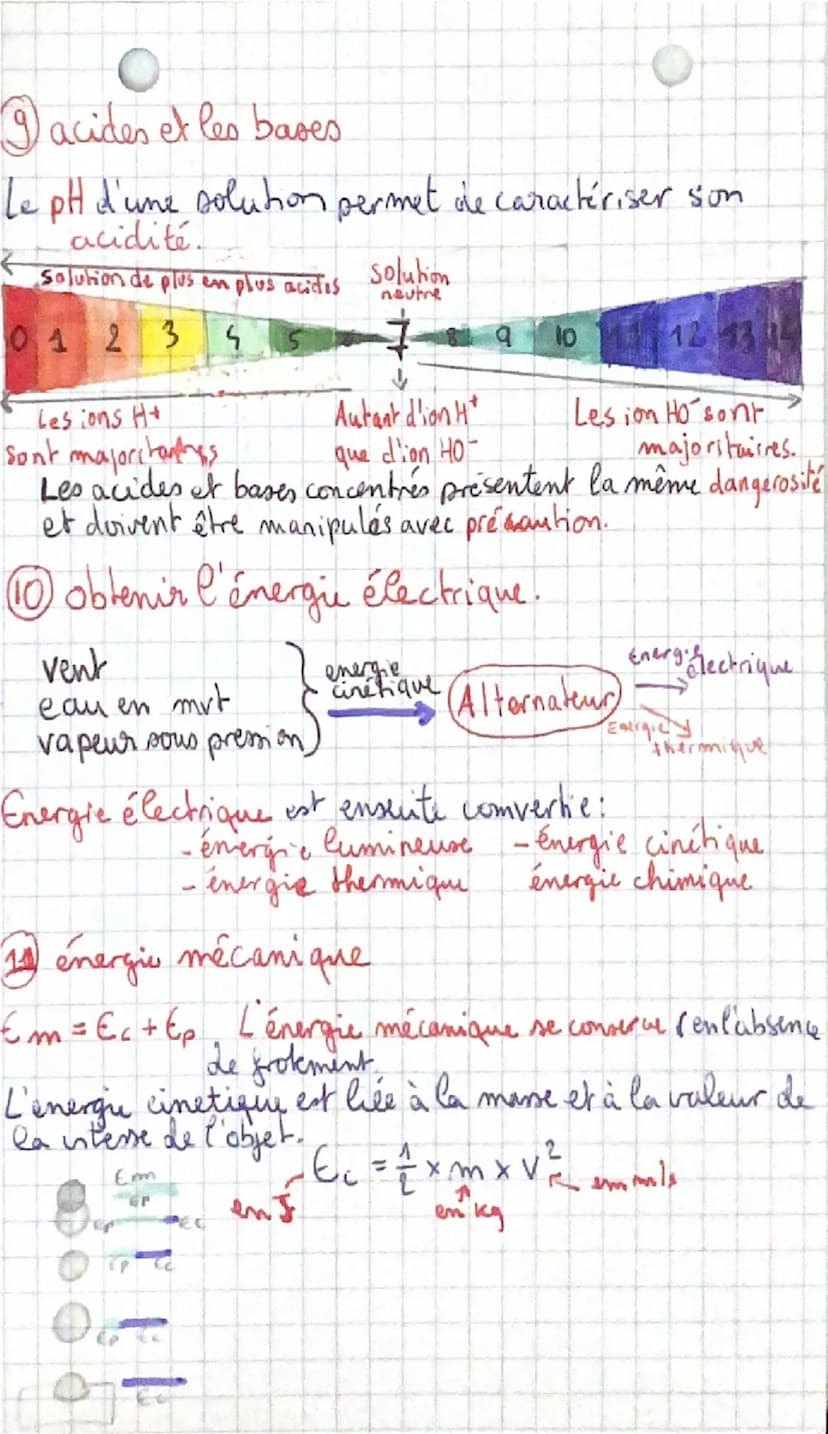 9 acides et les bases
Le pH d'une solution permet de caractériser son
acidité.
solution de plus en plus acides
Solution
neutre
0 1 2 3 4 5 7 8 9 10 11 12 13 14
Les ions H+
sont majoritaires
Autant d'ion H+
que d'ion HO-
Les ion HO- sont
majoritaires.
Les acides et bases concentrés présentent la même dangerosité
et doivent être manipulés avec précaution.
10 obtenir l'énergie électrique.
vent
eau en mvt
vapeur sous pression
energie
cinétique
Alternateur
Energie
électrique
Energie
thermique
Energie électrique est ensuite comvertie:
- énergie lumineuse - énergie cinétique
- énergie thermique énergie chimique
11 énergie mécanique
Em = Ec + Ep L'énergie mécanique se conserve (en l'absence
de frotement.
L'energie cinetique est liée à la masse et à la valeur de
la vitesse de l'objet.
Ec = 1/2 x m x v²
en J
en kg
en m/s
Em
EP
Ep Ec
Ep Ec
Ep Ec
Ec